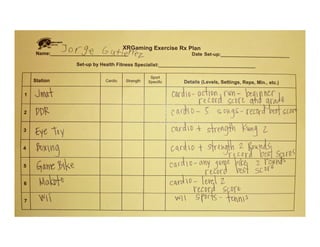 XRGaming Exercise Rx Plan
Name: Jorge Gutierrez Date Set-up:
Set-up by Health Fitness Specialist:
Station Cardio Strength Sport Specific Details (Levels, Settings, Reps, Min., etc.)
1 Jmat cardio - action, run - beginner
record score and grade
2 DDR cardio - 5 songs - record best score
3 Eye Toy cardio + strength Kung 2
4 Boxing cardio + strength 2 Rounds
record best scores
5 Game Bike cardio - any game bike 2 rounds
record best score
6 Makoto cardio - level 2
record score
7 Wii Wii sports - tennis